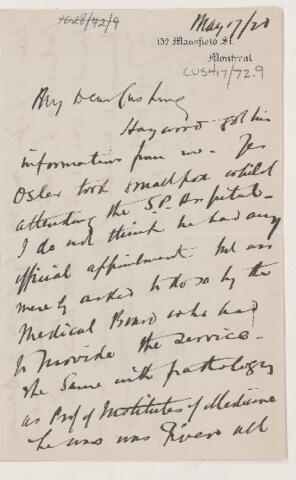 7028/72/9
May 17/20
132 Mansfield St.
Montreal
CUS417/72.9
My Dear Cushing
Haywood got his
information from me. Yes
Osler took smallpox whilst
attending the S.P. Hospital.
I do not think he had any
official appointment but was
merely asked to do so by the
Medical Board who had
to provide the service.
The same with pathology
as Prof of Institutes of Medicine
he was was given all